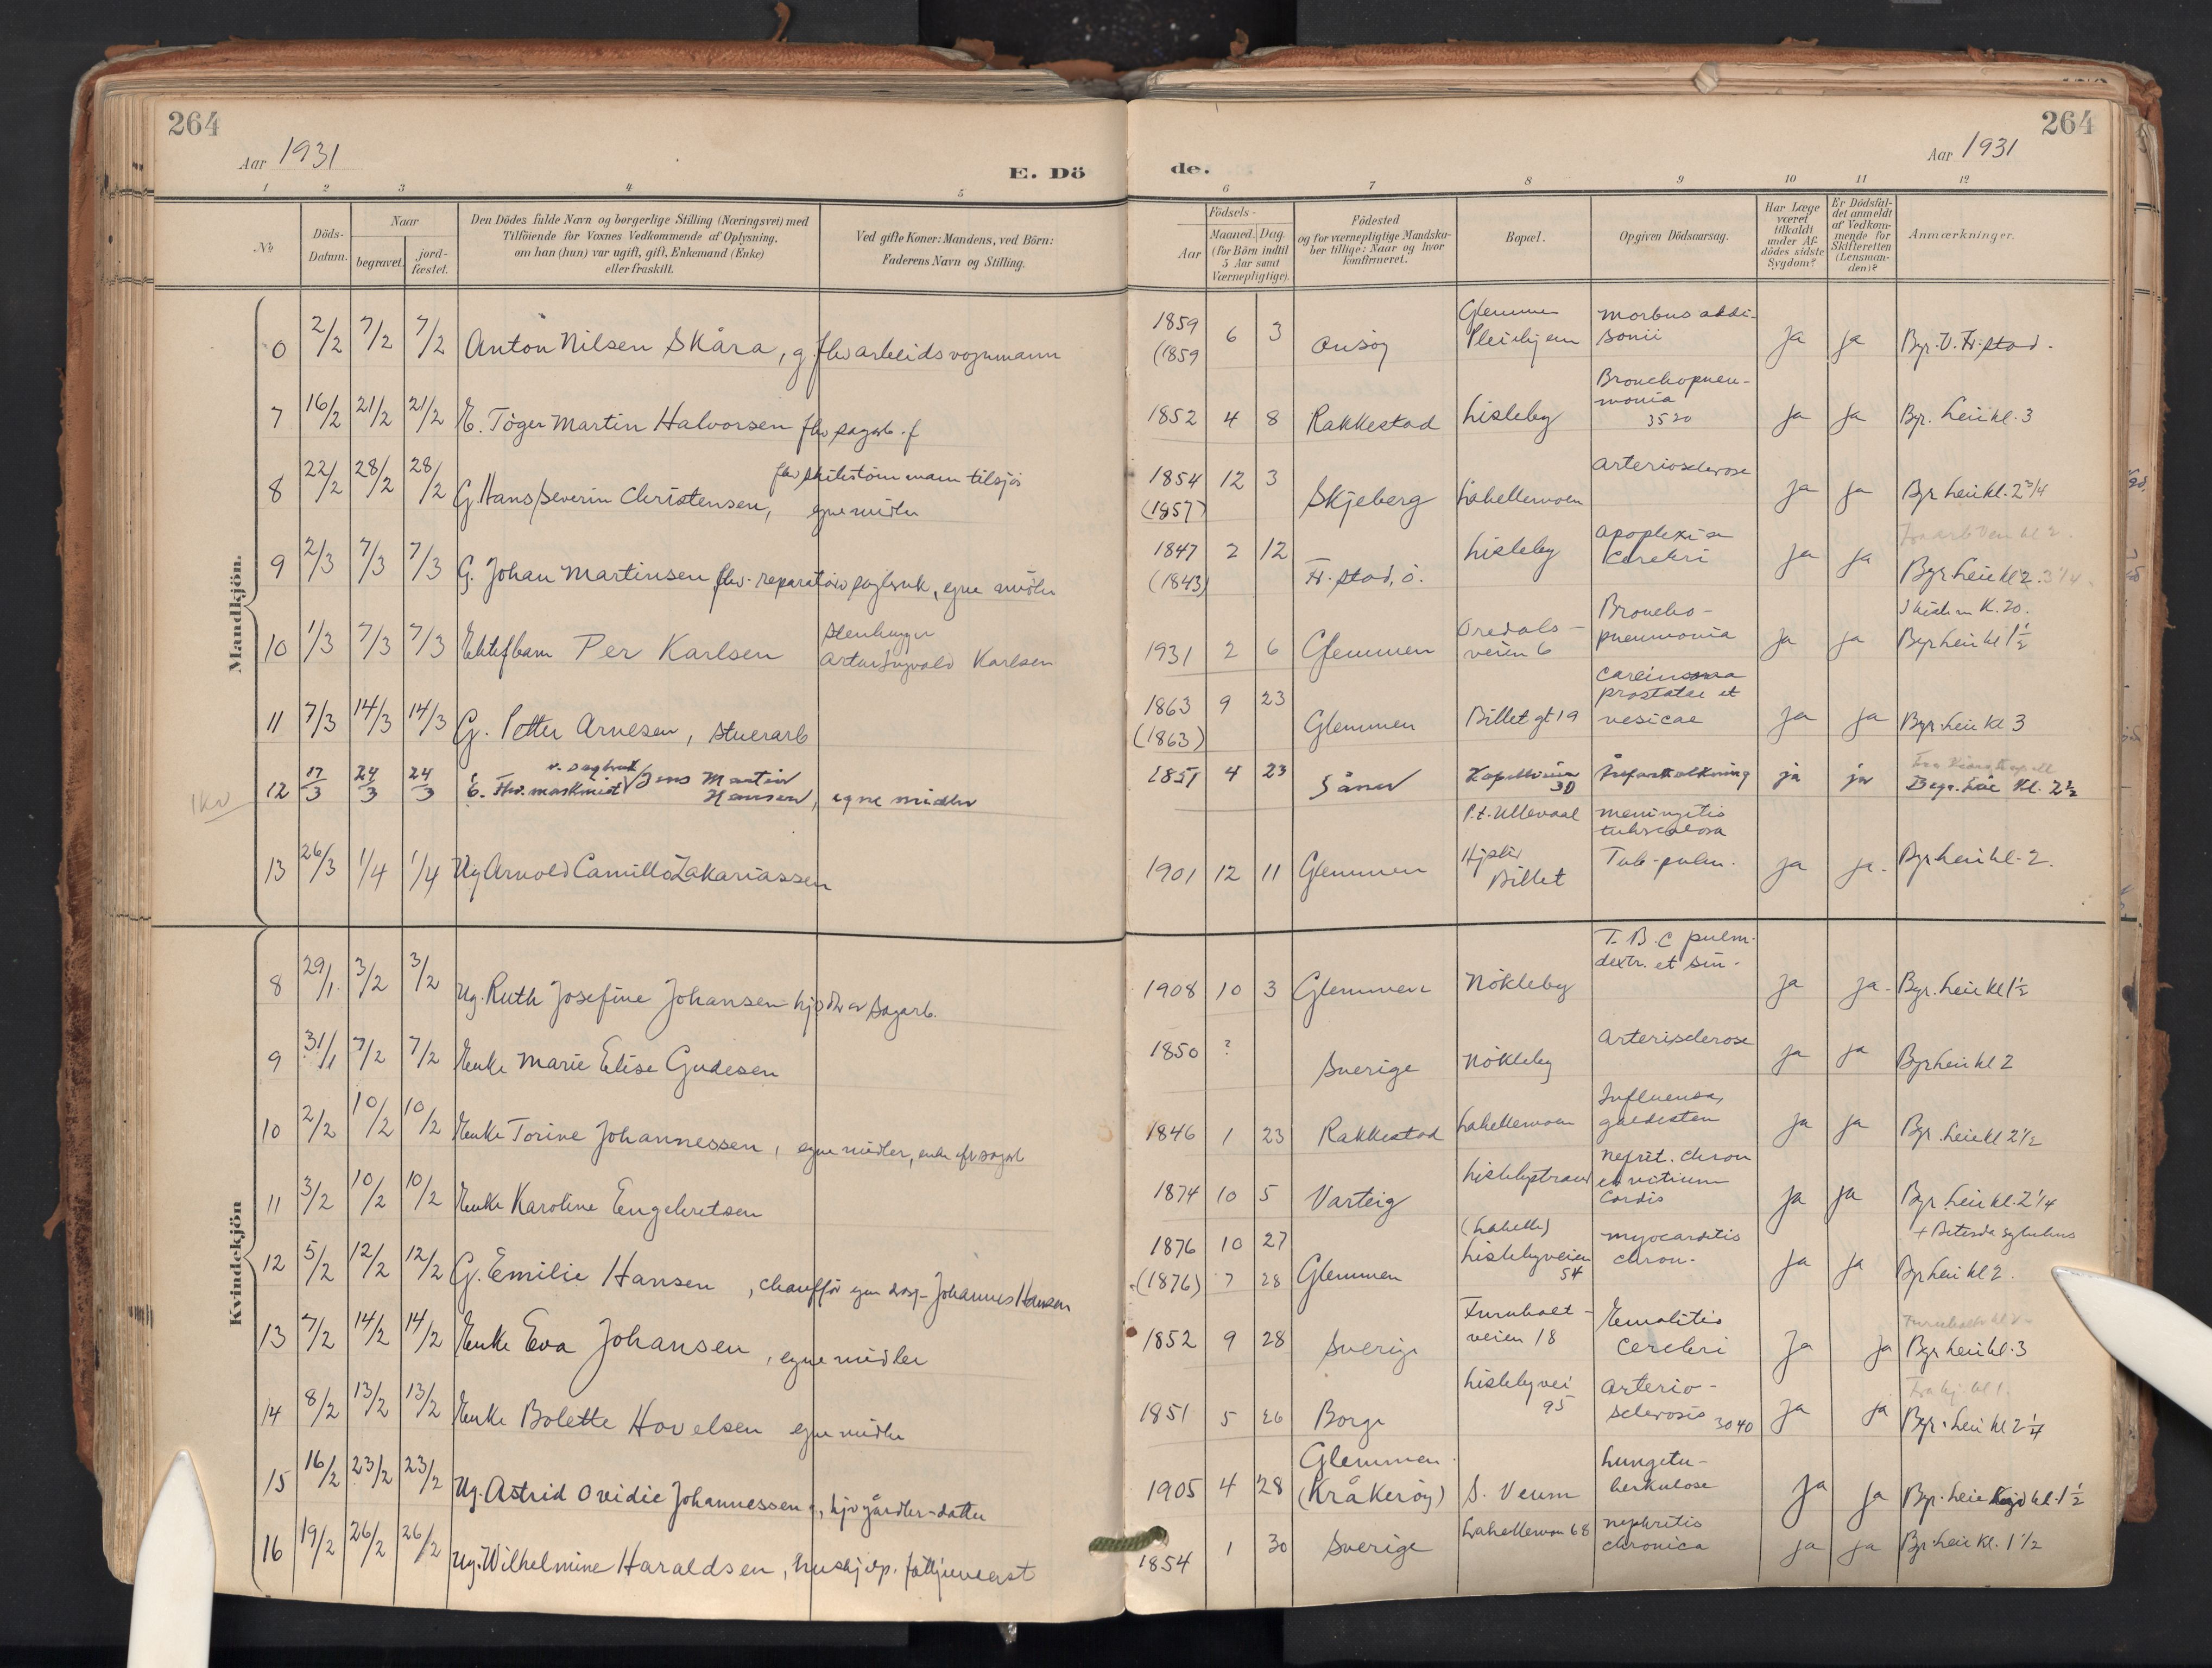 264
264
Aar 1931
Aar 1931
E. Dö de.
1 2 3 4 5 6 7 8 9 10 11 12
No
Döds-Datum.
Naar
begravet.
jord-fæstet.
Den Dödes fulde Navn og borgerlige Stilling (Næringsvei) med
Tilföiende for Voxnes Vedkommende af Oplysning,
om han (hun) var ugift, gift, Enkemand (Enke)
eller fraskilt.
Ved gifte Koner: Mandens, ved Börn:
Faderens Navn og Stilling.
Födsels-
Aar
Maaned. Dag.
(for Börn indtil
5 Aar samt
Værnepligtige).
Födested
og for værnepligtige Mandska-
ber tillige: Naar og hvor
konfirmeret.
Bopæl.
Opgiven Dödsaarsag.
Har Læge
været
tilkaldt
under Af-
dödes sidste
Sygdom?
Er Dödsfal-
det anmeldt
af Vedkom-
mende for
Skifteretten
(Lensman-
den)?
Anmærkninger.
Mandkjön.
0 2/2 7/2 7/2 Anton Nilsen Skåra, g. fhv arbeids vognmann 1859 (1859 6 3 Onsøy Glemmen Pleiehjem morbus addi-sonii ja ja Bgr. V. Fr.stad.
7 16/2 21/2 21/2 E. Töger Martin Halvorsen fhv sagarb. f 1852 4 8 Rakkestad Lisleby Bronchopneu-monia 3520 ja ja Bgr. Leie kl. 3
8 22/2 28/2 28/2 G. Hans Severin Christensen, tilsjös egne midler 1854 (1857) 12 3 Skjeberg Lahellemoen arteriosclerose ja ja Bgr Leie kl. 2 3/4
9 2/3 7/3 7/3 G. Johan Martinsen fhv. reparatör sagbruk, egne midler 1847 (1843) 2 12 Fr. stad, ö. Lisleby apoplexia cerebri ja ja Bgr Leie kl 2. 3 1/4
10 1/3 7/3 7/3 Ektef barn Per Karlsen stenhugger Artur Ingvald Karlsen 1931 2 6 Glemmen Oredals-veien 6 Broncho-pneumonia ja ja K. 20. Bgr Leie kl 1 1/2
11 7/3 14/3 14/3 G. Petter Arnesen, stuerarb 1863 (1863) 9 23 Glemmen Billet gt 19 carcinoma prostatae et vesicae ja ja Bgr. Leie kl 3
1 kv
12 17/3 24/3 24/3 E. Fhv. maskinist v. sagbruk Jens Martin Hansen, egne midler 1851 4 23 Såner Kapellveien 30 Åreforkalkning ja ja Begr. Leie kl. 2 1/2
13 26/3 1/4 1/4 Ug Arnold Camillo Zakariassen 1901 12 11 Glemmen P.t. Ullevaal Billet meningitis tuberculosa Tub-pulm. ja ja. Bgr Leie kl. 2.
Kvindekjön
8 29/1 3/2 3/2 Ug. Ruth Josefine Johansen hj dtr av sagarb. 1908 10 3 Glemmen Nökleby T.B.C pulm. dextr. et sin. ja ja. Bgr. Leie kl 1 1/2
9 31/1 7/2 7/2 Enke Marie Elise Gudesen 1850 ? Sverige Nökleby Arterisclerose ja ja Bgr Leie kl 2
10 2/2 10/2 10/2 Enke Torine Johannessen, egne midler, enke eft sagarb 1846 1 23 Rakkestad Lahellemoen Influensa, galdesten ja ja Bgr. Leie kl 2 1/2
11 3/2 10/2 10/2 Enke Karoline Engebretsen 1874 10 5 Varteig Lislebystrand nefrit. chron et vitium cordis ja ja Bgr. Leie kl. 2 1/4
12 5/2 12/2 12/2 G. Emilie Hansen, chaufför egen drosj- Johannes Hansen 1876 (1876) 10 27 7 28 Glemmen (Lahelle) Lislebyveien 54 myocarditis chron. ja ja + Betesda sykehus Bgr Leie kl 2.
13 7/2 14/2 14/2 Enke Eva Johansen, egne midler 1852 9 28 Sverige Furuholt-veien 18 Emolitio cerebri ja ja Bgr Leie kl. 3
14 8/2 13/2 13/2 Enke Bolette Hovelsen egne midler 1851 5 26 Borge Lislebyvei 95 Arterio-sclerosis 3040 ja ja Bgr. Leie kl 2 1/4
15 16/2 23/2 23/2 Ug. Astrid Ovidie Johannessen, hjv gårdbr-datter 1905 4 28 Glemmen (Kråkeröy) S. Veum Lungetu-berkulose ja ja Bgr. Leie kl. 1 1/2
16 19/2 26/2 26/2 Ug. Wilhelmine Haraldsen, hushjelp. 1854 1 30 Sverige Lahellemoen 68 nephritis chronica ja ja Bgr. Leie kl. 1 1/2